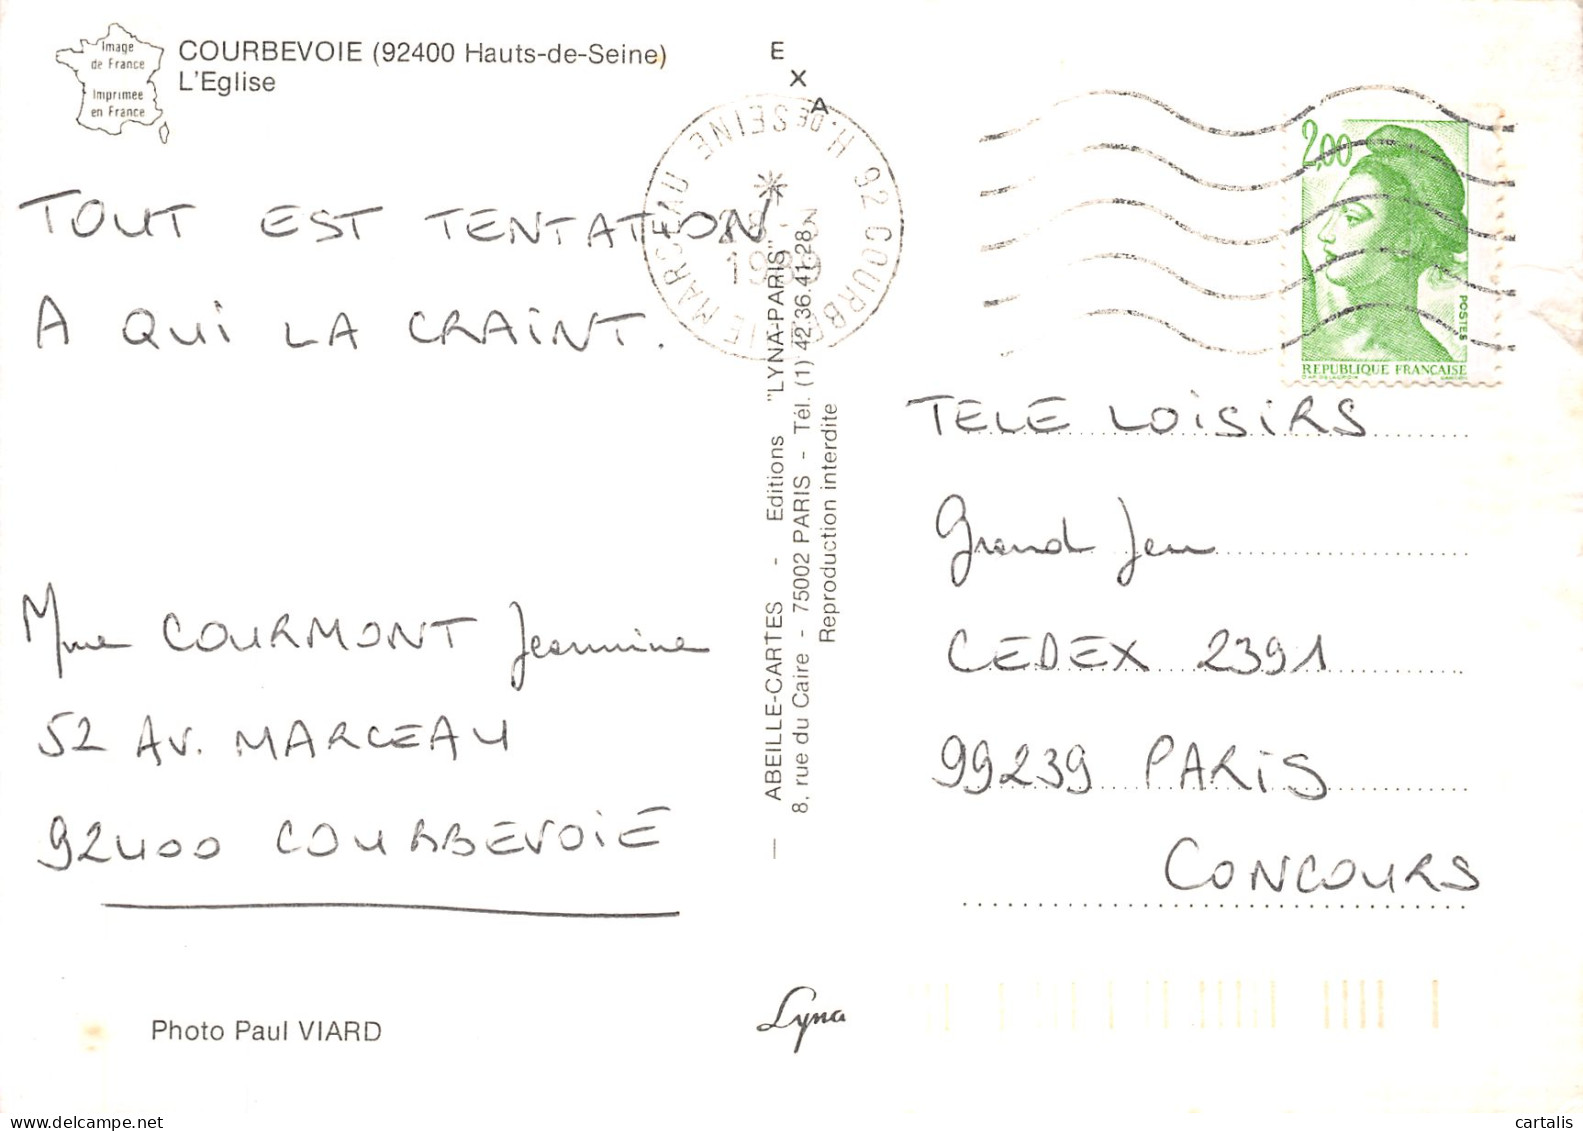 Image
de France
Imprimée
en France
COURBEVOIE (92400 Hauts-de-Seine)
L'Eglise
E
X
A
TOUT EST TENTATION
A QUI LA CRAINT.
Mme COURMONT Jeannine
52 AV. MARCEAU
92400 COURBEVOIE
Photo Paul VIARD
— ABEILLE-CARTES - Editions "LYNA-PARIS"
8, rue du Caire - 75002 PARIS - Tél. (1) 42.36.41.28
Reproduction interdite
Lyna
92 COURBEVOIE MARCEAU
H. DE SEINE
1989
2,00
POSTES
REPUBLIQUE FRANÇAISE
TELE LOISIRS
Grand Jeu
CEDEX 2391
99239 PARIS
CONCOURS
cartalis